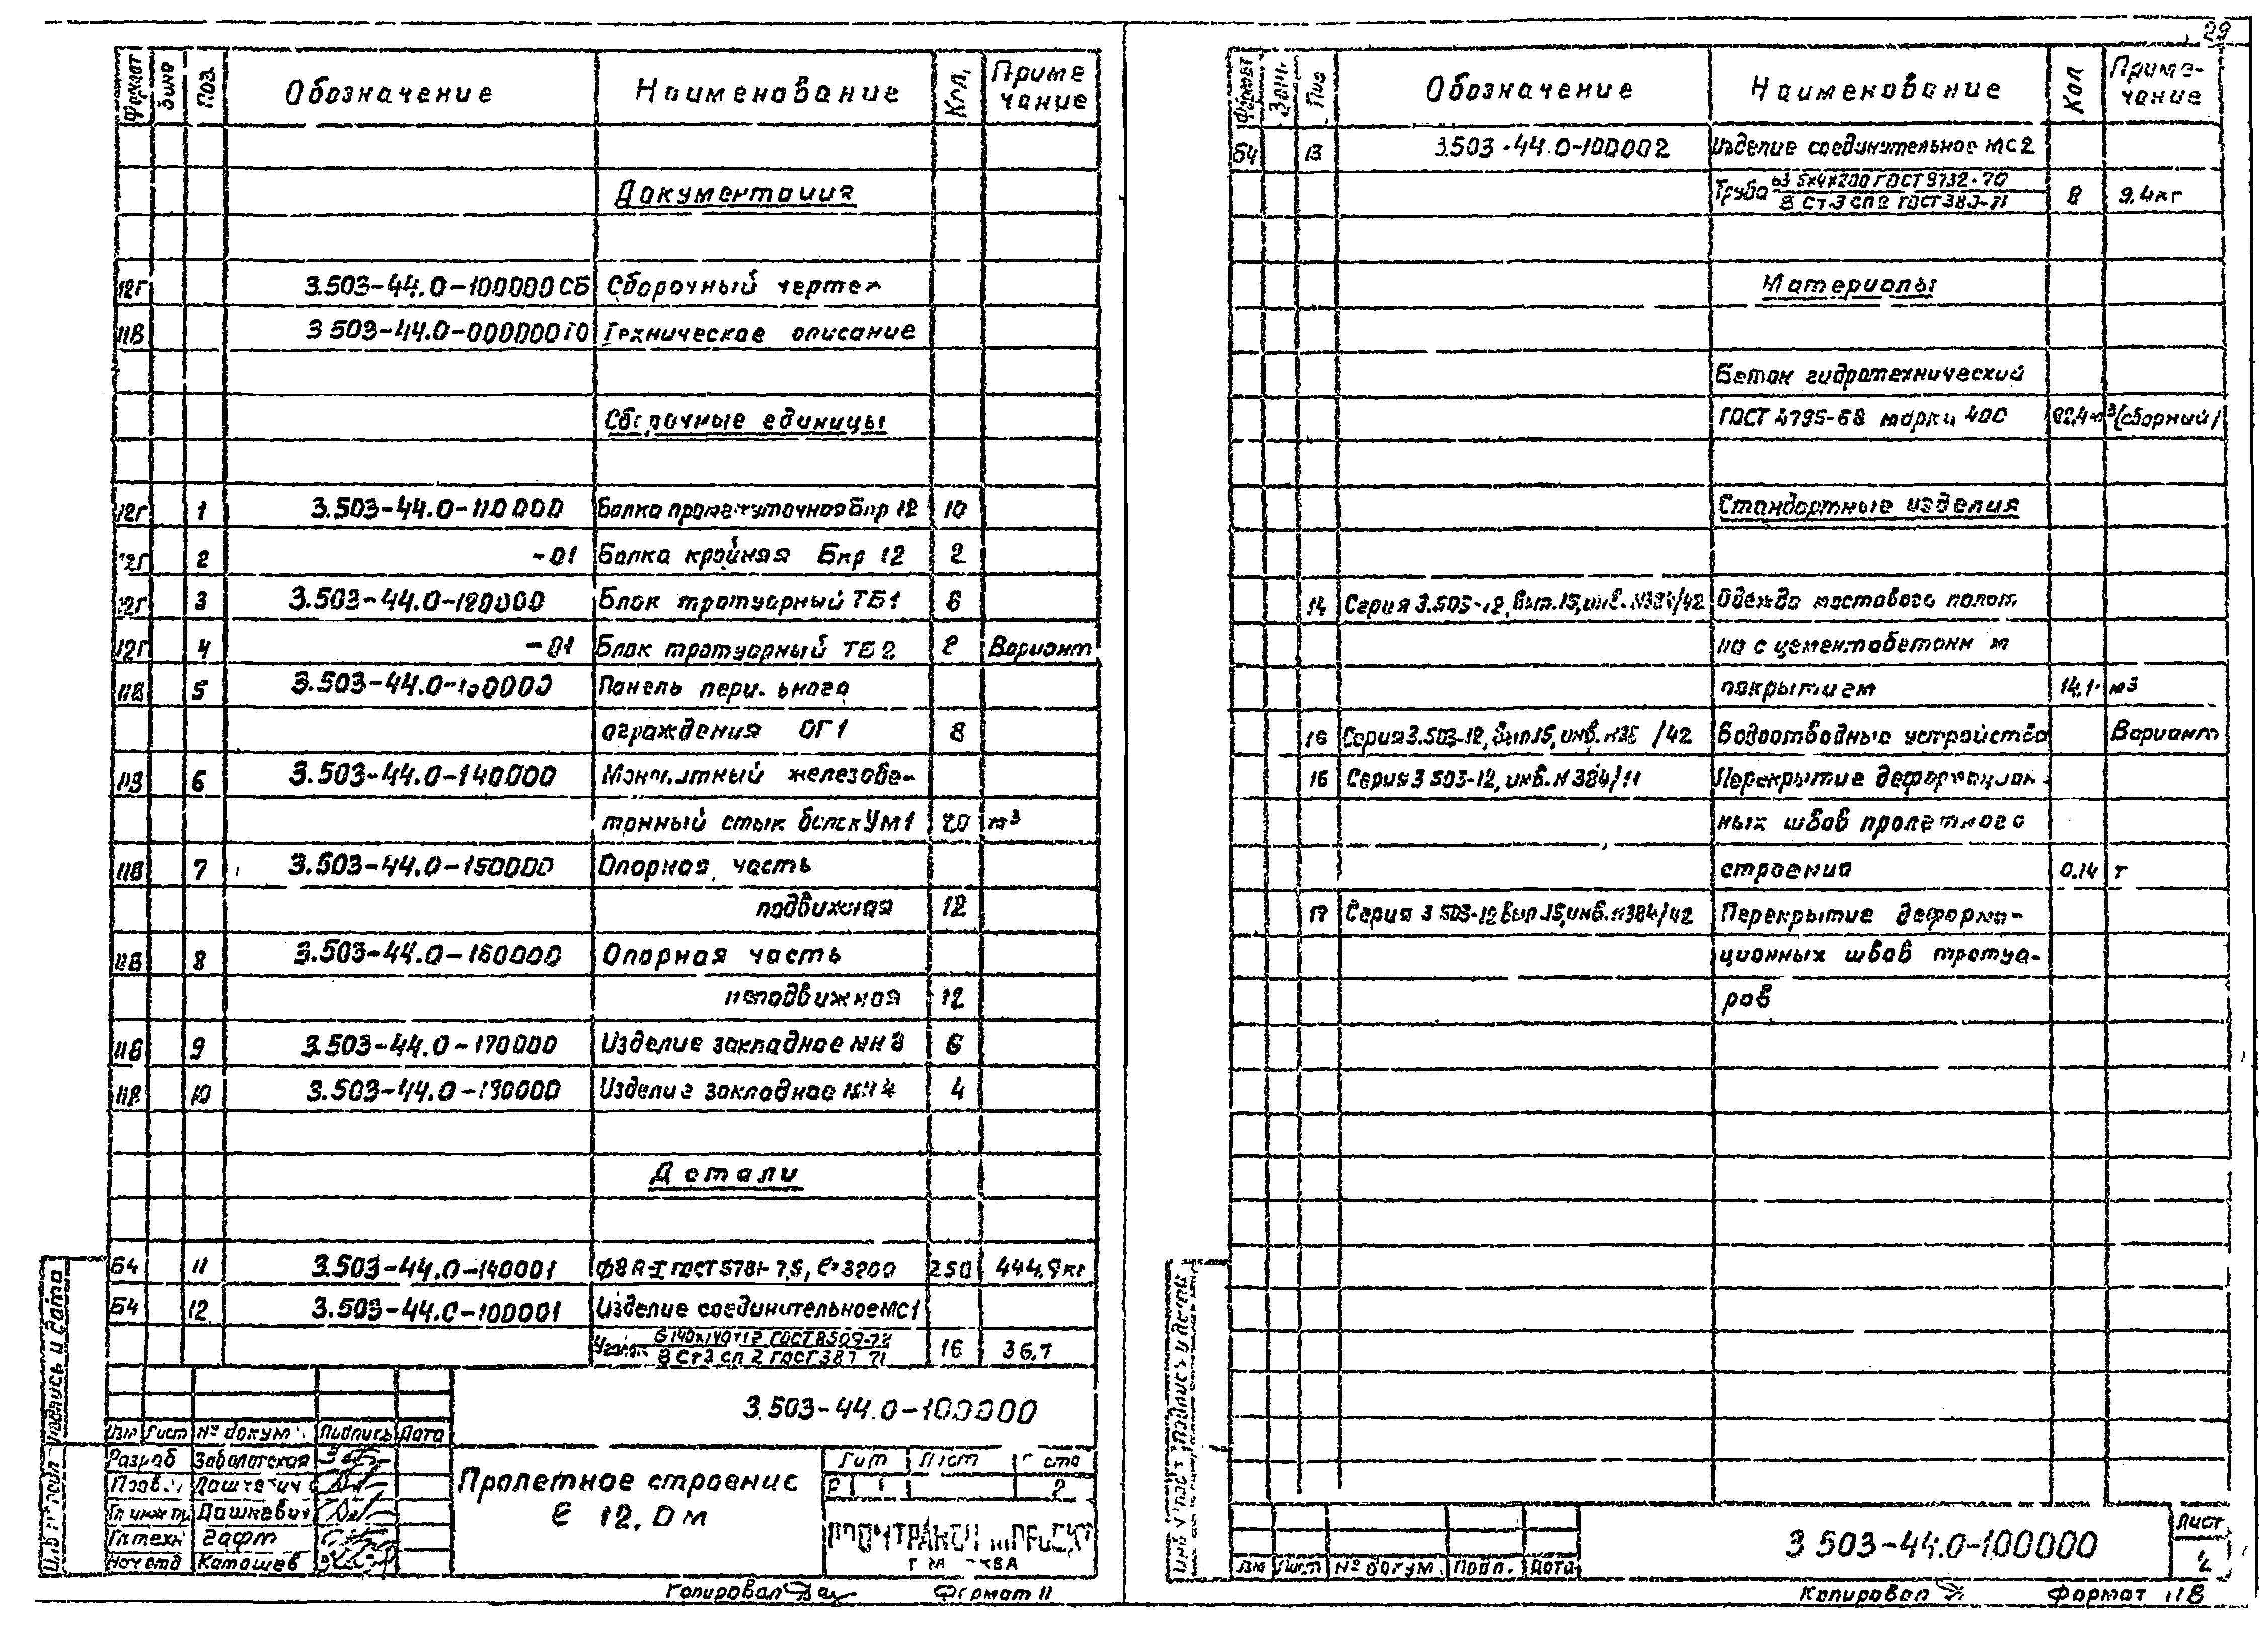 29
Формат Поз. Обозначение Наименование Кол. Приме
чание
Документация
12Г 3.503-44.0-100000 СБ Сборочный
11В 3.503-44.0-000000 Техническое описание
Сборочные единицы
12Г 1 3.503-44.0-110000 Балка промежуточная Бпр 12 10
12Г 2 -01 Балка крайняя Бкр 12 2
12Г 3 3.503-44.0-120000 Блок тротуарный ТБ1 6
12Г 4 -01 Блок тротуарный ТБ2 Вариант
11В 5 Панель
ограждения ОГ1 8
11В 6 3.503-44.0-140000 Монолитный железобе-
тонный стык балок УМ1 20 м³
11В 7 3.503-44.0-150000 Опорная часть
подвижная 12
11В 8 3.503-44.0-160000 Опорная часть
неподвижная 12
11В 9 3.503-44.0-170000 Изделие закладное 6
11В 10 Изделие закладное 4
Детали
Б4 11 3.503-44.0-140001 250 444,9 кг
Б4 12 3.503-44.0-100001 Изделие соединительное МС1
Уголок 16 36.7
3.503-44.0-100000
Изм Лист № докум. Подпись Дата
Разраб Заболотская
Пров. Дашкевич
Гл инж пр. Дашкевич
Гл техн Гафт
Нач отд Каташев
Пролетное строение
ℓ 12,0 м
Лит Лист
Р 1 2
Копировал Формат 11
Формат Зон. Обозначение Наименование Кол Приме-
чание
Б4 13 3.503-44.0-100002 Изделие соединительное МС2
Труба 8 9,4 кг
Материалы
Бетон гидротехнический
ГОСТ 4795-68 марки 400 /сборный/
Стандартные изделия
14 Серия 3.503-12, вып.15, инв. №384/42 Одежда мостового полот
на с
покрытием м3
Серия 3.503-12, вып.15, инв. Водоотводные устройства Вариант
16 Серия 3 503-12, инв. №384/11 Перекрытие деформацион-
ных швов пролетного
строения 0.14 т
17 Серия 3 503-12 вып.15, инв. №384/42 Перекрытие деформа-
ционных швов тротуа-
ров
3 503-44.0-100000
Лист
2
Изм Лист № докум. Подп. Дата
Копировал Формат 11В